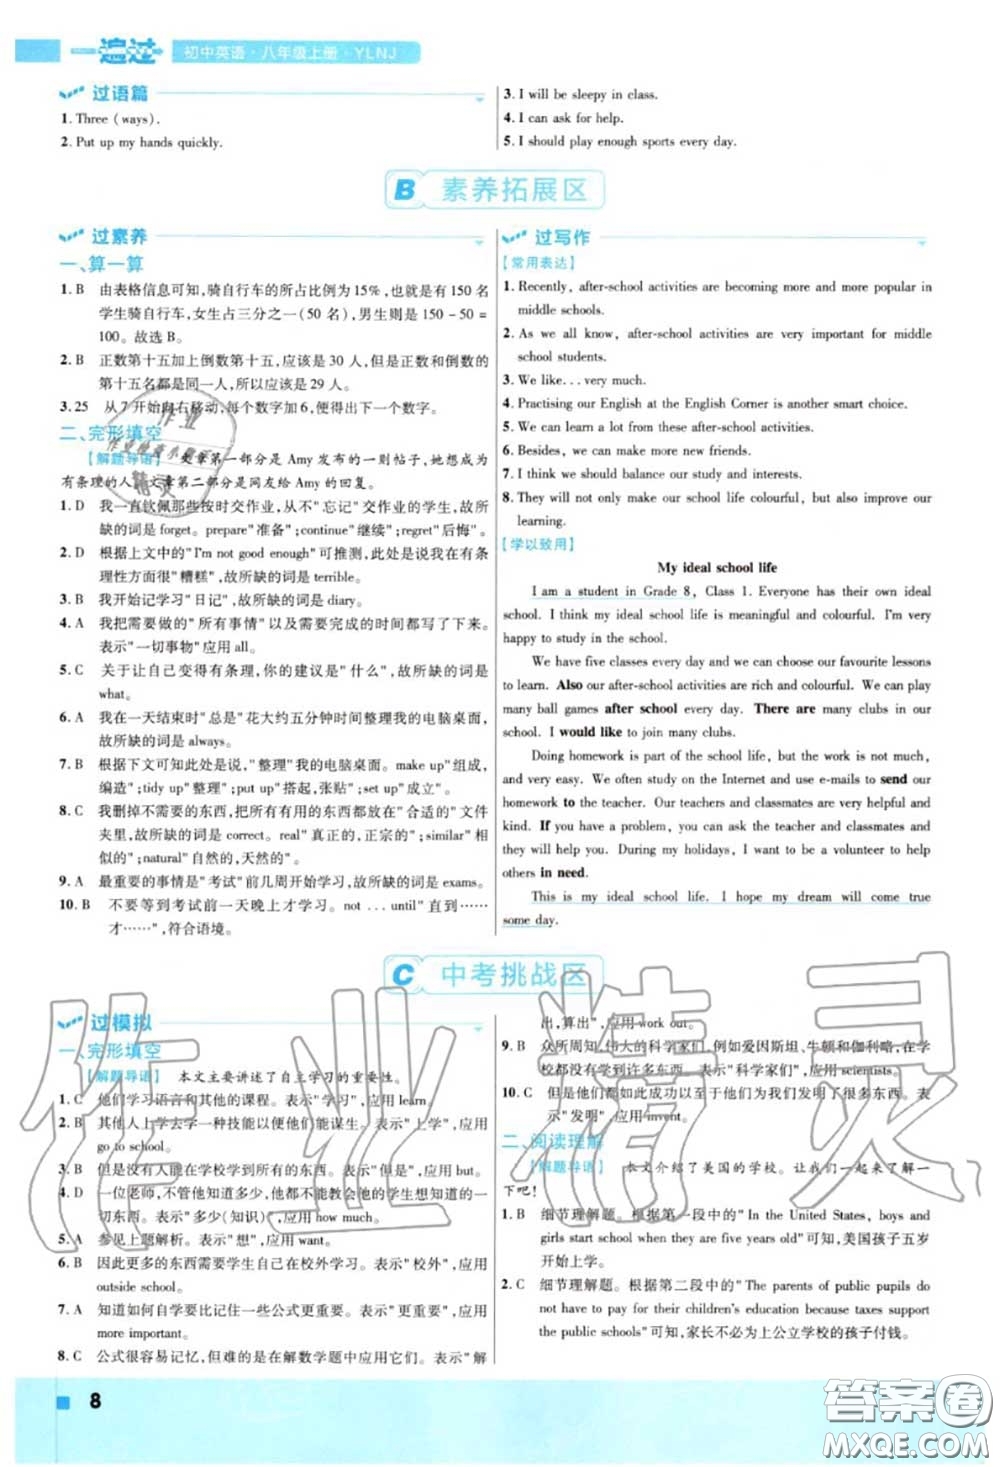 一遍过 初中英语·八年级上册·YLNJ
过语篇
1. Three (ways).
2. Put up my hands quickly.
3. I will be sleepy in class.
4. I can ask for help.
5. I should play enough sports every day.
B 素养拓展区
过素养
一、算一算
1. B 由表格信息可知,骑自行车的所占比例为15%,也就是有150名
学生骑自行车,女生占三分之一(50名),男生则是150-50=
100。故选B。
2. B 正数第十五加上倒数第十五,应该是30人,但是正数和倒数的
第十五名都是同一人,所以应该是29人。
3. 25 从7开始向右移动,每个数字加6,便得出下一个数字。
二、完形填空
【解题导语】 文章第一部分是Amy发布的一则帖子,她想成为
有条理的人。文章第二部分是网友给Amy的回复。
1. D 我一直钦佩那些按时交作业,从不"忘记"交作业的学生,故所
缺的词是forget。prepare"准备";continue"继续";regret"后悔"。
2. D 根据上文中的"I'm not good enough"可推测,此处是说我在有条
理性方面是很"糟糕",故所缺的词是terrible。
3. B 我开始记学习"日记",故所缺的词是diary。
4. A 我把需要做的"所有事情"以及需要完成的时间都写了下来。
表示"一切事物"应用all。
5. C 关于让自己变得有条理,你的建议是"什么",故所缺的词是
what。
6. A 我在一天结束时"总是"花大约五分钟时间整理我的电脑桌面,
故所缺的词是always。
7. B 根据下文可知此处是说,"整理"我的电脑桌面。make up"组成,
编造";tidy up"整理";put up"搭起,张贴";set up"成立"。
8. C 我删掉不需要的东西,把所有有用的东西都放在"合适的"文件
夹里,故所缺的词是correct。real"真正的,正宗的";similar"相
似的";natural"自然的,天然的"。
9. A 最重要的事情是"考试"前几周开始学习,故所缺的词是exams。
10. B 不要等到考试前一天晚上才学习。not ... until"直到……
才……",符合语境。
过写作
【常用表达】
1. Recently, after-school activities are becoming more and more popular in
middle schools.
2. As we all know, after-school activities are very important for middle
school students.
3. We like... very much.
4. Practising our English at the English Corner is another smart choice.
5. We can learn a lot from these after-school activities.
6. Besides, we can make more new friends.
7. I think we should balance our study and interests.
8. They will not only make our school life colourful, but also improve our
learning.
【学以致用】
My ideal school life
I am a student in Grade 8, Class 1. Everyone has their own ideal
school. I think my ideal school life is meaningful and colourful. I'm very
happy to study in the school.
We have five classes every day and we can choose our favourite lessons
to learn. Also our after-school activities are rich and colourful. We can play
many ball games after school every day. There are many clubs in our
school. I would like to join many clubs.
Doing homework is part of the school life, but the work is not much,
and easy. We often study on the Internet and use e-mails to send our
homework to the teacher. Our teachers and classmates are very helpful and
kind. If you have a problem, you can ask the teacher and classmates and
they will help you. During my holidays, I want to be a volunteer to help
others in need.
This is my ideal school life. I hope my dream will come true
some day.
C 中考挑战区
过模拟
一、完形填空
【解题导语】 本文主要讲述了自主学习的重要性。
1. C 他们学习语言和其他的课程。表示"学习",应用learn。
2. B 其他人上学去学一种技能以便他们能谋生。表示"上学",应用
go to school。
3. B 但是没有人能在学校学到所有的东西。表示"但是",应用but。
4. D 一位老师,不管他知道多少,他都不能教会他的学生想知道的一
切东西。表示"多少(知识)",应用how much。
5. A 参见上题解析。表示"想",应用want。
6. B 因此更多的东西需要学生自己在校外学习。表示"校外",应用
outside school。
7. A 知道如何自学要比记住一些公式更重要。表示"更重要",应用
more important。
8. C 公式很容易记忆,但难的是在解数学题中应用它们。表示"解
出,算出",应用work out。
9. B 众所周知,伟大的科学家们,例如爱因斯坦、牛顿和伽利略,在学
校都没学到许多东西。表示"科学家们",应用scientists。
10. C 但是他们都如此成功以至于他们为我们发明了很多东西。表
示"发明",应用invent。
二、阅读理解
【解题导语】 本文介绍了美国的学校。让我们一起来了解一
下吧!
1. B 细节理解题。根据第一段中的"In the United States, boys and
girls start school when they are five years old"可知,美国孩子五岁
开始上学。
2. C 细节理解题。根据第二段中的"The parents of public pupils do
not have to pay for their children's education because taxes support
the public schools"可知,家长不必为上公立学校的孩子付钱。
8
作业精灵
答案圈
MXQE.COM